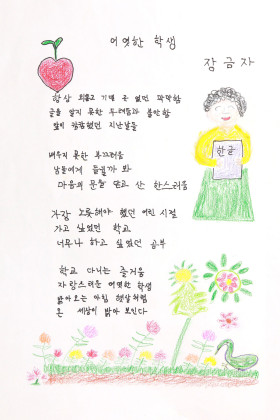 어엿한 학생
장금자
항상 외롭고 기댈 곳 없던 막막함
글을 알지 못한 두려움과 불안함
앞이 캄캄했던 지난날들
배우지 못한 부끄러움
남들에게 들킬까 봐
마음의 문을 닫고 산 한스러움
가장 노릇해야 했던 어린 시절
가고 싶었던 학교
너무나 하고 싶었던 공부
한글
학교 다니는 즐거움
자랑스러운 어엿한 학생
밝아오는 아침 햇살처럼
온 세상이 밝아 보인다